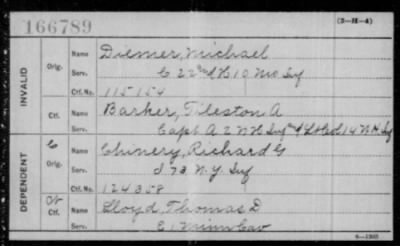 166789
(3-H-4)
INVALID
Orig.
Name Diemer, Michael
Serv. C 22nd & H 10 Mo Inf
Ctf. No. 115154
Ctf.
Name Barker, Tileston A
Serv. Capt A 2 N H Inf & Lt Col 14 N.H. Inf
DEPENDENT
C
Orig.
Name Chinery, Richard G
Serv. I 73 N.Y. Inf
Ctf. No. 124358
Ctf.
Name Lloyd, Thomas D
Serv. E 1 Minn Cav
6-1905